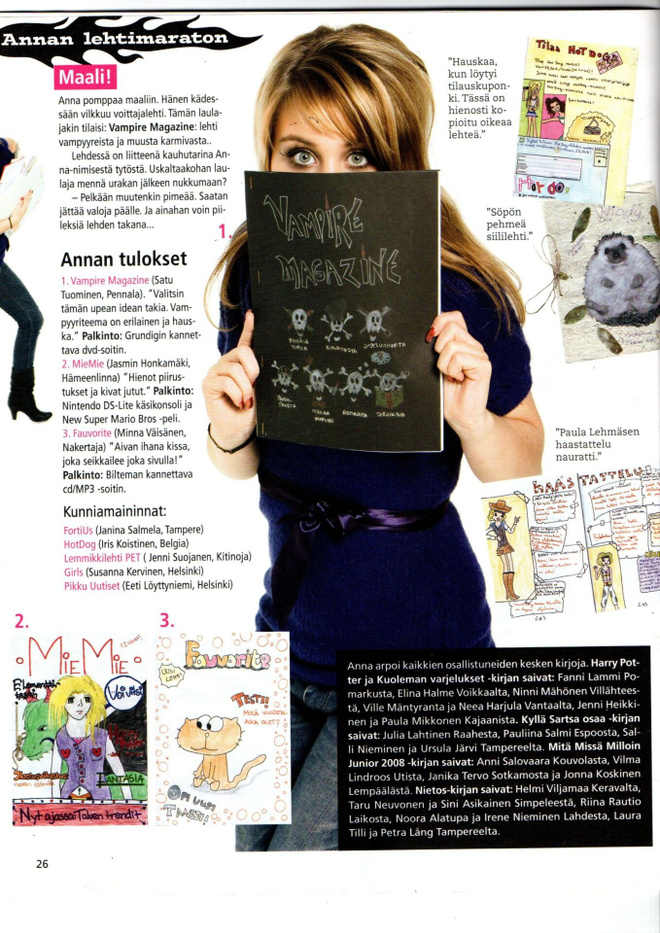 Annan lehtimaraton
Maali!
Anna pomppaa maaliin. Hänen kädes-
sään vilkkuu voittajalehti. Tämän laula-
jakin tilaisi: Vampire Magazine: lehti
vampyyreista ja muusta karmivasta..
Lehdessä on liitteenä kauhutarina An-
na-nimisestä tytöstä. Uskaltaakohan lau-
laja mennä urakan jälkeen nukkumaan?
– Pelkään muutenkin pimeää. Saatan
jättää valoja päälle. Ja ainahan voin pii-
leksiä lehden takana...
1.
Annan tulokset
1. Vampire Magazine (Satu
Tuominen, Pennala). "Valitsin
tämän upean idean takia. Vam-
pyyriteema on erilainen ja haus-
ka." Palkinto: Grundigin kannet-
tava dvd-soitin.
2. MieMie (Jasmin Honkamäki,
Hämeenlinna) "Hienot piirus-
tukset ja kivat jutut." Palkinto:
Nintendo DS-Lite käsikonsoli ja
New Super Mario Bros -peli.
3. Fauvorite (Minna Väisänen,
Nakertaja) "Aivan ihana kissa,
joka seikkailee joka sivulla!"
Palkinto: Bilteman kannettava
cd/MP3 -soitin.
Kunniamaininnat:
FortiUs (Janina Salmela, Tampere)
HotDog (Iris Koistinen, Belgia)
Lemmikkilehti PET ( Jenni Suojanen, Kitinoja)
Girls (Susanna Kervinen, Helsinki)
Pikku Uutiset (Eeti Löyttyniemi, Helsinki)
VAMPIRE
MAGAZINE
"Hauskaa,
kun löytyi
tilauskupon-
ki. Tässä on
hienosti ko-
pioitu oikeaa
lehteä."
Tilaa HOT DOG
Hot dog
"Söpön
pehmeä
siililehti."
"Paula Lehmäsen
haastattelu
nauratti."
HAASTATTELU
2.
MIEMIE
Voi ei!
FANTASIA
Nyt ajassa: Talven trendit
3.
Fauvorite
UUSI
LEHTI
TESTI!
MIKÄ VUODEN-
AIKA OLET?
Anna arpoi kaikkien osallistuneiden kesken kirjoja. Harry Pot-
ter ja Kuoleman varjelukset -kirjan saivat: Fanni Lammi Po-
markusta, Elina Halme Voikkaalta, Ninni Mähönen Villähtees-
tä, Ville Mäntyranta ja Neea Harjula Vantaalta, Jenni Heikki-
nen ja Paula Mikkonen Kajaanista. Kyllä Sartsa osaa -kirjan
saivat: Julia Lahtinen Raahesta, Pauliina Salmi Espoosta, Sal-
li Nieminen ja Ursula Järvi Tampereelta. Mitä Missä Milloin
Junior 2008 -kirjan saivat: Anni Salovaara Kouvolasta, Vilma
Lindroos Utista, Janika Tervo Sotkamosta ja Jonna Koskinen
Lempäälästä. Nietos-kirjan saivat: Helmi Viljamaa Keravalta,
Taru Neuvonen ja Sini Asikainen Simpeleestä, Riina Rautio
Laikosta, Noora Alatupa ja Irene Nieminen Lahdesta, Laura
Tilli ja Petra Lång Tampereelta.
26